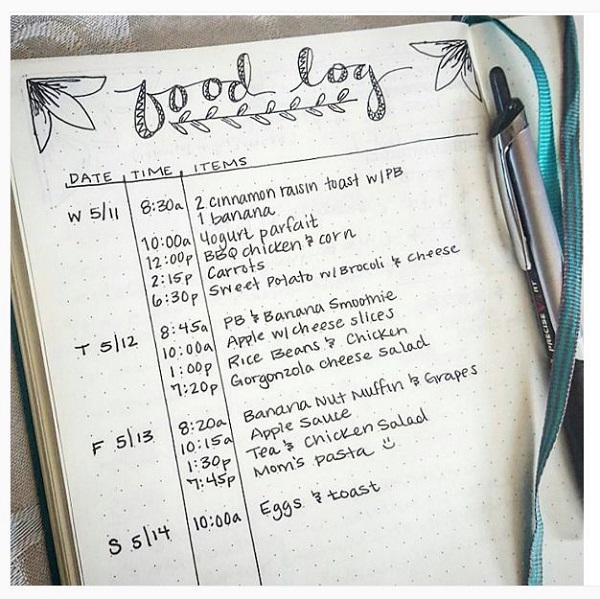 food log
DATE TIME ITEMS
W 5/11 8:30a 2 cinnamon raisin toast w/PB
1 banana
10:00a Yogurt parfait
12:00p BBQ chicken & corn
2:15p Carrots
6:30p Sweet Potato w/Brocoli & cheese
T 5/12 8:45a PB & Banana Smoothie
10:00a Apple w/cheese slices
1:00p Rice Beans & Chicken
7:20p Gorgonzola cheese salad
F 5/13 8:20a Banana Nut Muffin & Grapes
10:15a Apple Sauce
1:30p Tea & Chicken Salad
7:45p Mom's pasta
S 5/14 10:00a Eggs & toast
PRECISE V5 RT